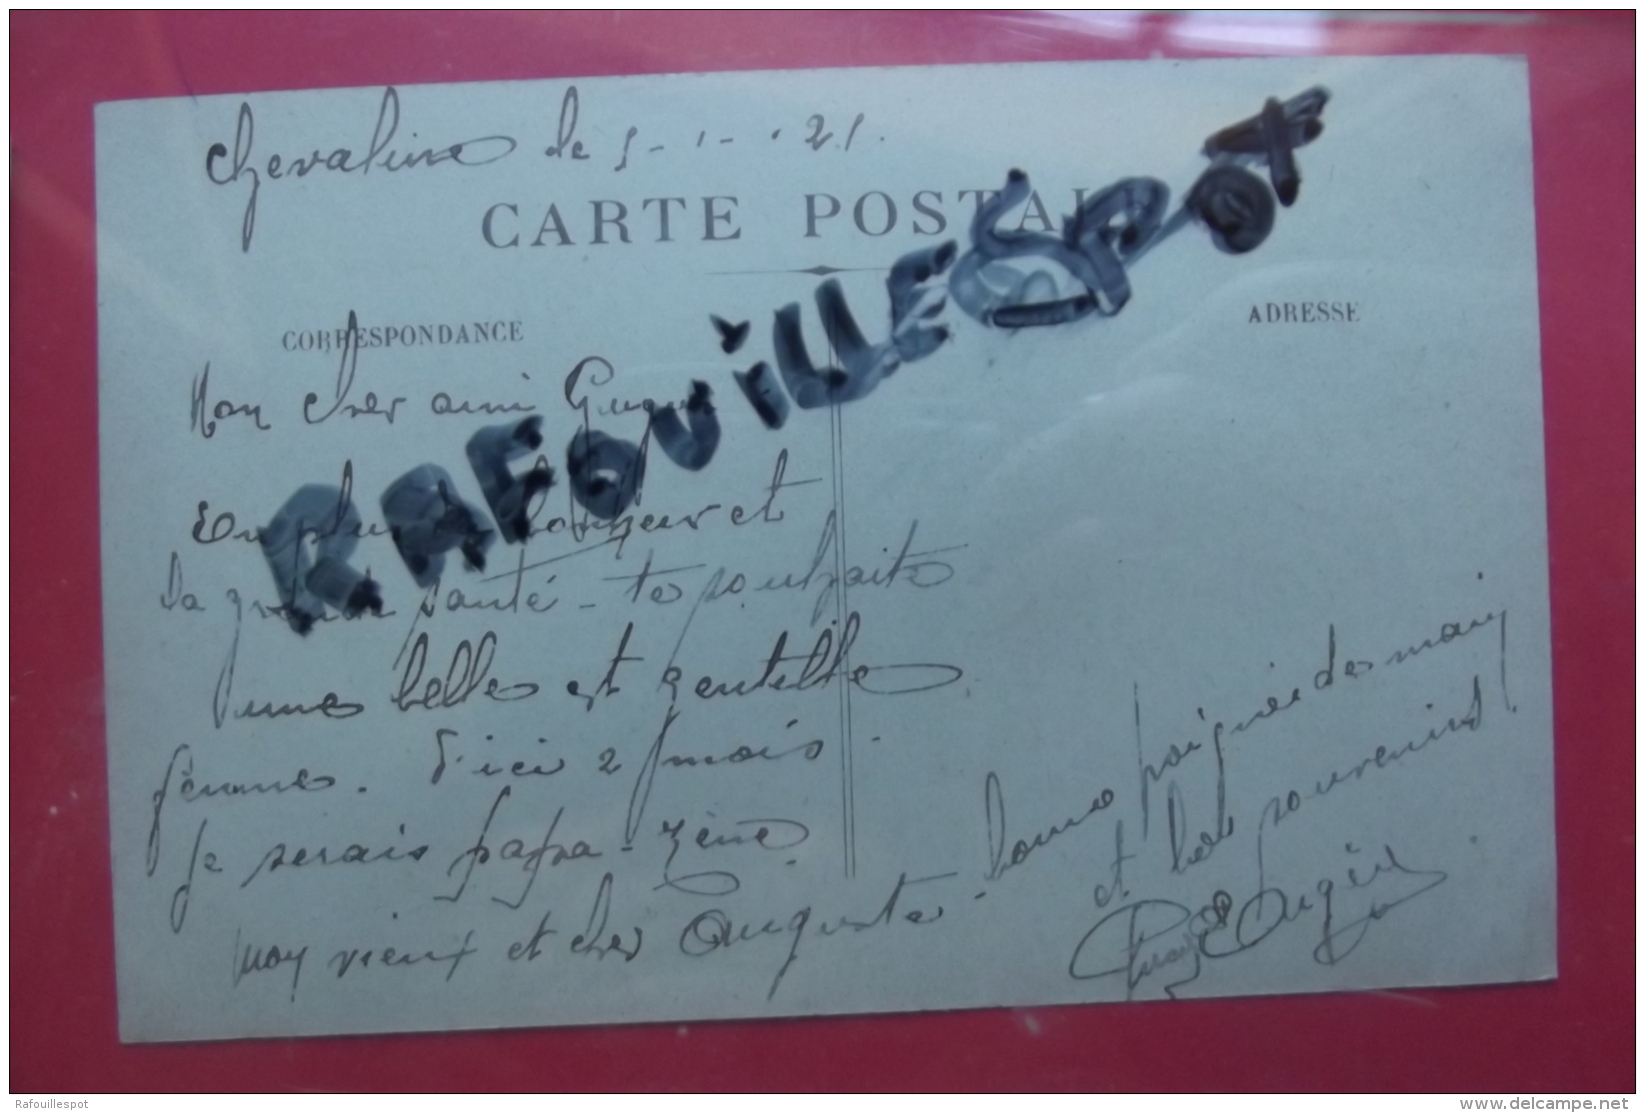 Chevaline le 5-1-21.
CARTE POSTALE
CORRESPONDANCE
ADRESSE
RAFOUILLESPOT
Mon cher ami
En plus de bonheur et
la grande santé - te souhaite
une belle et gentille
femme. D'ici 2 mois
je serais papa -
mon vieux et cher Auguste -
bonne poignée de main
et bon souvenird
Eugène
Rafouillespot
www.delcampe.net